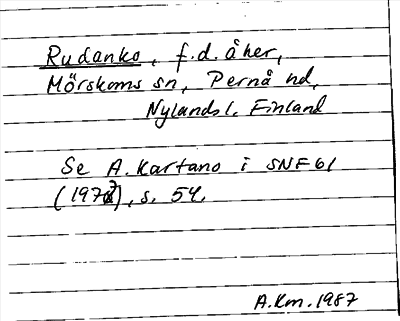 Rudanko, f.d. åker,
Mörskoms sn, Pernå hd,
Nylands l. Finland
Se A. Kartano i SNF 61
(1973), s. 54.
A.Km. 1987